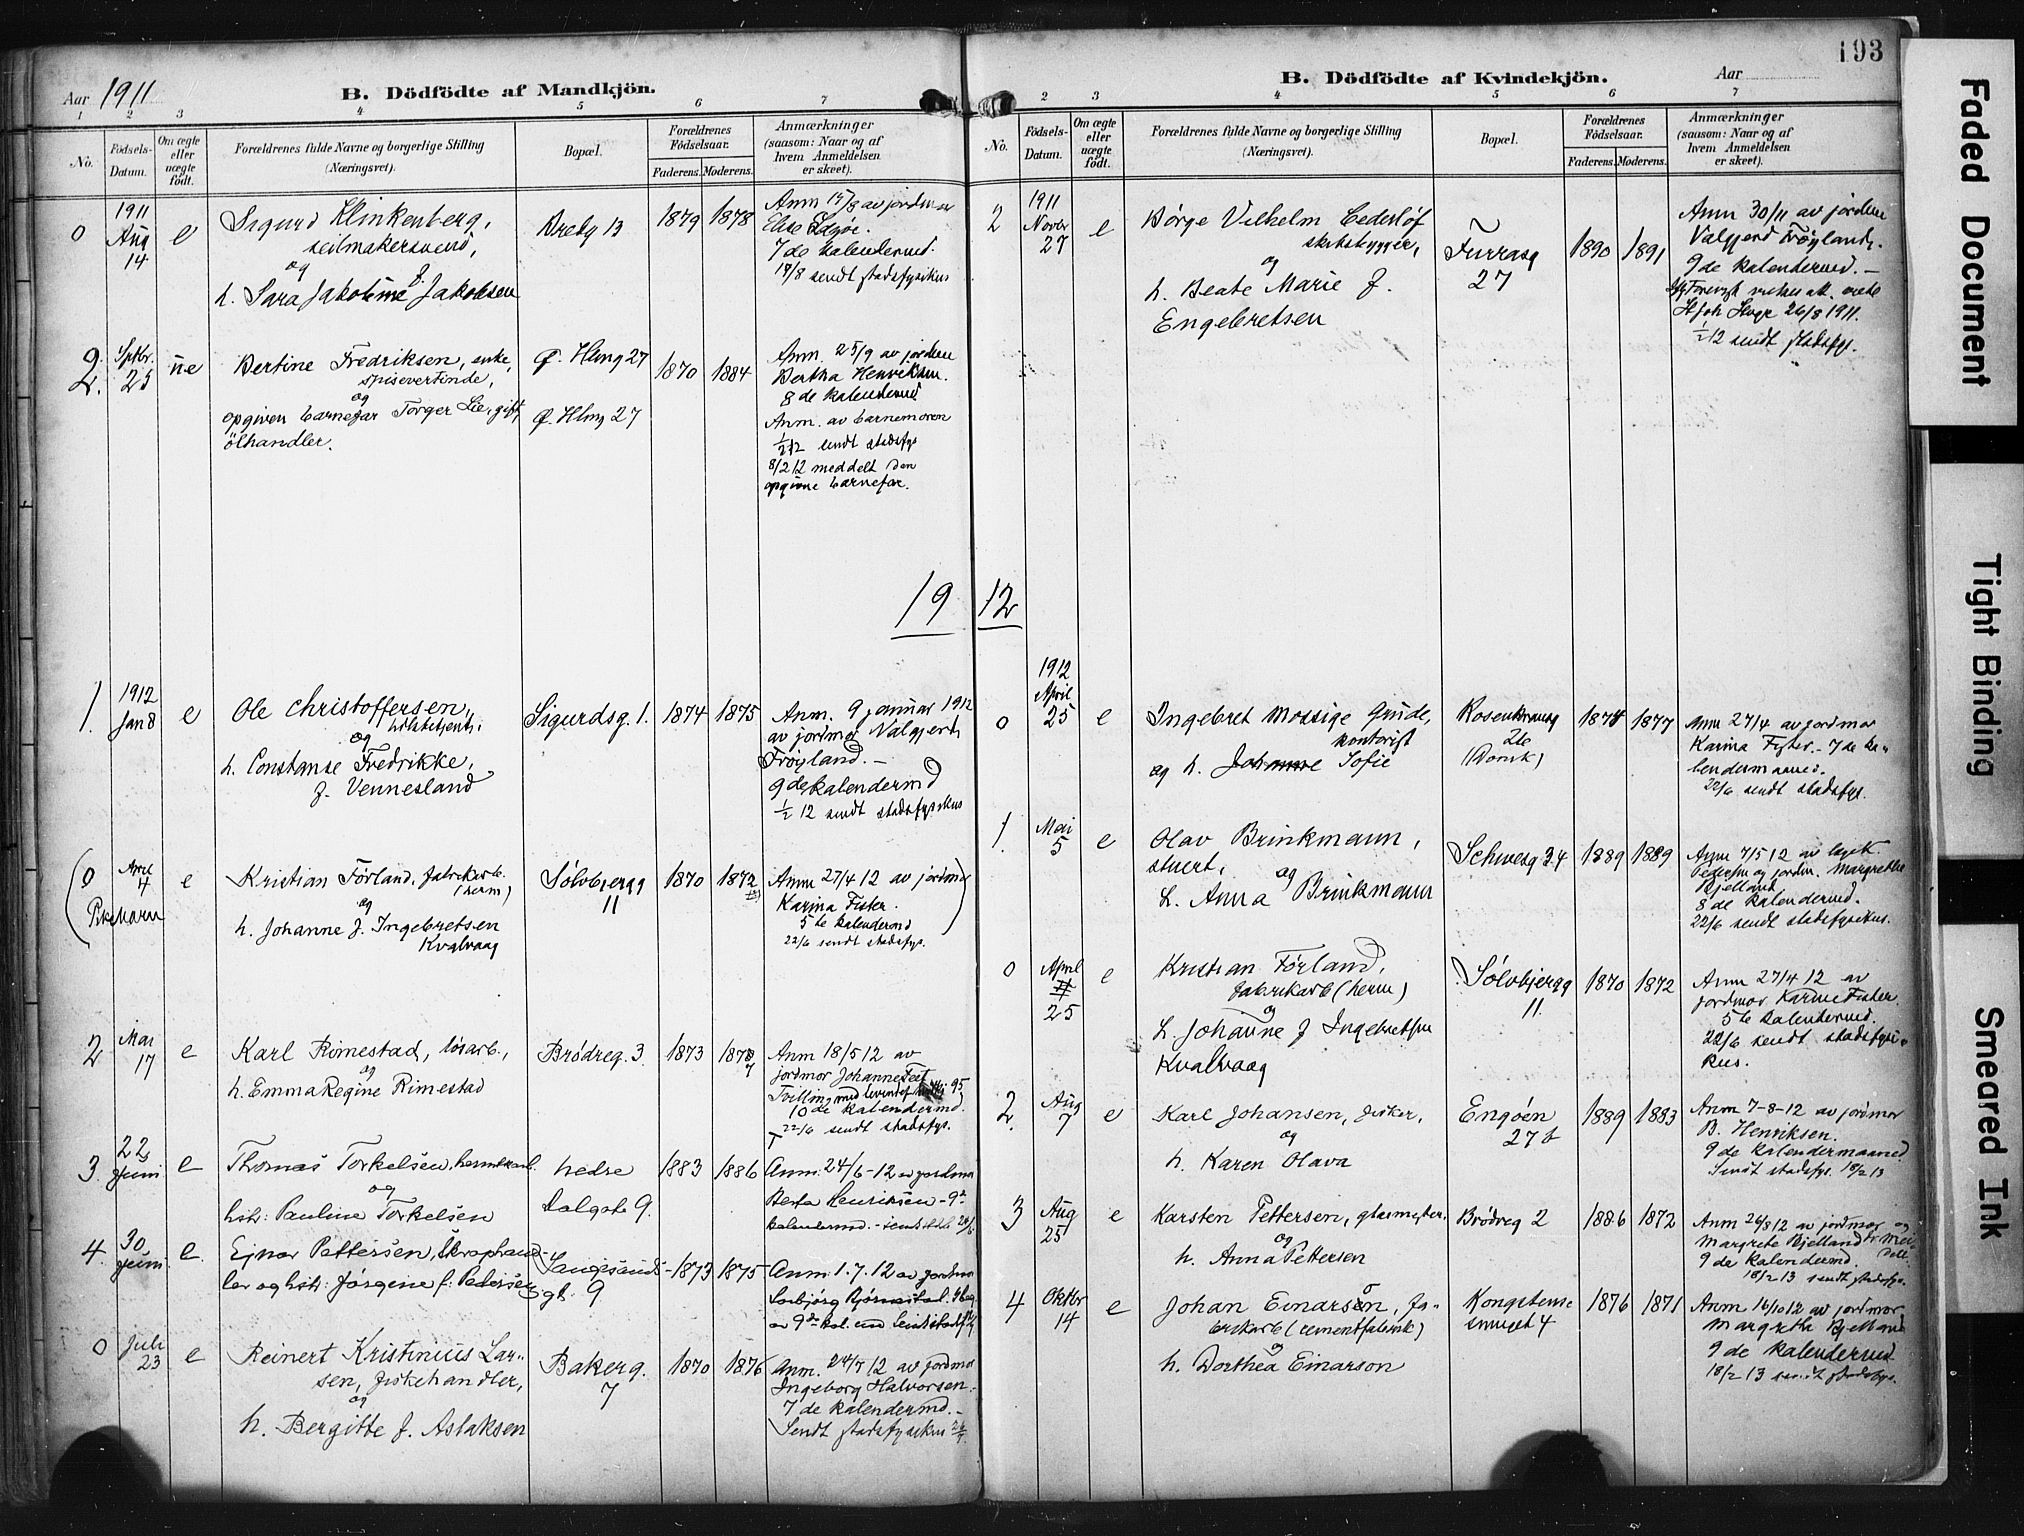 Aar 1911
B. Dödfödte af Mandkjön.
1 2 3 4 5 6 7
No.
Födsels-
Datum.
Om ægte
eller
uægte
födt.
Forældrenes fulde Navne og borgerlige Stilling
(Næringsvei).
Bopæl.
Forældrenes
Födselsaar.
Faderens. Moderens.
Anmærkninger
(saasom: Naar og af
hvem Anmeldelsen
er skeet).
0
1911
Aug
14
e
Sigurd Klinkenberg,
seilmakersvend,
og
h. Sara Jakobine f. Jakobsen
Breby 13
1879 1878
Anm 15/8 av jordmor
Else
7 de kalendermd.
18/8 sendt stadsfysikus
2.
Septbr.
25
ue
Bertine Fredriksen, enke,
spisevertinde,
og
opgiven barnefar Torger Lie, gift,
ölhandler.
Ø. Hlmg 27
Ø. Hlmg 27
1870 1884
Anm. 25/9 av jordm
Bertha Henriksen.
8 de kalendermd
Anm. av barnemoren
1/2 12 sendt stadsfys
8/2 12 meddelt den
opgivne barnefar.
19
1.
1912
Jan 8
e
Ole Christoffersen,
og
h. Constanse Fredrikke,
f. Vennesland
Sigurdsg. 1.
1874 1875
Anm. 9 januar 1912
av jordmor Valgjerd
Frøyland. –
9 de kalendermd
1/2 12 sendt stadsfysikus
(0
April
4
e
Kristian Førland, fabrikarb.
(herm)
og
h. Johanne f. Ingebretsen
Kvalvaag
Sølvbjergg
11
1870 1872
Anm 27/4 12 av jordmor
Karina Fister.
5 te kalendermd
22/6 sendt stadsfys.
2
Mai
17
e
Karl Rimestad, løsarb.,
og
h. Emma Regine Rimestad
Brødreg. 3.
1873 1878
7
Anm 18/5 12 av
jordmor Johanne Feet
Tvilling med levendef.
10 de kalendermd.
22/6 sendt stadsfys.
3.
22
Juni
e
Thomas Torkelsen,
og
hstr: Pauline Torkelsen
nedre
Dalgate 9.
1883 1886
Anm: 24/6 - 12 av jordmor
Berta Henriksen - 9de
kalendermd. -
4.
30
Juni
e.
Ejnar Pettersen, Skraphand-
ler og hstr: Jørgine f. Pedersen
Langesunds-
gt. 9
1873 1875
Anm: 1. 7. 12 av jordmor
0
Juli
23
e
Reinert Kristinius Lar-
sen, fiskehandler,
og
h. Bergitte f. Aslaksen
Bakerg.
7
1870 1876
Anm. 24/7 12 av jordmor
Ingeborg Halvorsen.
7 de kalendermd. –
Sendt stadsfysikus
193
B. Dödfödte af Kvindekjön.
Aar
2 3 4 5 6 7
No.
Födsels-
Datum.
Om ægte
eller
uægte
födt.
Forældrenes fulde Navne og borgerlige Stilling
(Næringsvei).
Bopæl.
Forældrenes
Födselsaar.
Faderens. Moderens.
Anmærkninger
(saasom: Naar og af
hvem Anmeldelsen
er skeet).
2
1911
Novbr
27
e
Børge Vilhelm Cederløf
skibsbygger,
og
h. Beate Marie f.
Engebretsen
Furrasg
27
1890 1891
Anm 30/11 av jordm
Valgjerd Frøyland.
9 de kalendermd. –
26/8 1911.
1/2 12 sendt stadsfys.
12
0
1912
April
25
e
Ingebret Mossige Grude,
kontorist
og h. Johanne Sofie
Rosenkransg
26
1874 1877
Anm 27/4 av jordmor
Karina Fister. – 7 de ka-
lendermaaned.
22/6 sendt stadsfys.
1.
Mai
5
e
Olav Brinkmann,
stuert,
og
h. Anna Brinkmann
Schwesg 34
1889 1889
Anm 7/5 12 av læge
Petersen og jordm. Margrethe
Bjelland
8 de kalendermd.
22/6 sendt stadsfysikus.
0
April
25
e
Kristian Førland,
fabrikarb (herm)
og
h. Johanne f Ingebretsen
Kvalvaag
Sølvbjergg
11.
1870 1872
Anm 27/4 12 av
jordmor Karine Fister
5 te kalendermd.
22/6 sendt stadsfysi-
kus.
2.
Aug
7
e
Karl Johansen, fisker,
og
h. Karen Olava
Engøen
27 b
1889 1883
Anm 7-8-12 av jordmor
B. Henriksen.
9 de kalendermaaned.
Sendt stadsfys. 18/2 13
3
Aug
25
e
Karsten Pettersen, glasmester.
og
h. Anna Pettersen
Brødreg 2
1886 1872
Anm 26/8 12 av jordmor og
Margrete Bjelland
9 de kalendermd.
18/2 13 sendt stadsfys.
4
Oktbr
14
e
Johan Einarson, fa-
brikarb (cementfabrik)
og
h. Dorthea Einarson
Kongstens-
smuget 4
1876 1871
Anm 16/10 12 av jordmor
Margrethe Bjelland
9 de kalendermd
18/2 13 sendt stadsfys.
Faded Document
Tight Binding
Smeared Ink